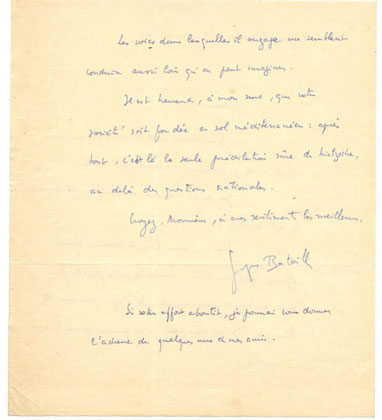 Les voies dans lesquelles il engage me semblent
conduire aussi loin qu'on peut imaginer.
Il est heureux, à mon sens, que votre
société soit fondée en sol méditerranéen : après
tout, c'est là la seule prédilection sûre de Nietzsche,
au delà des questions nationales.
Croyez, Monsieur, à mes sentiments les meilleurs.
Georges Bataille
Si votre effort aboutit, je pourrai vous donner
l'adresse de quelques uns de mes amis.